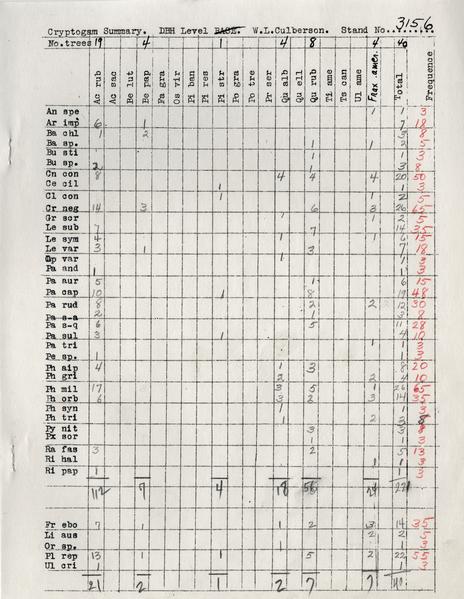 3156
Cryptogam Summary. DBH Level BASE. W.L.Culberson. Stand No.
No.trees 19 4 1 4 8 4 40
Ac rub Ac sac Be lut Be pap Fa gra Os vir Pi ban Pi res Pi str Po gra Po tre Pr ser Qu alb Qu ell Qu rub Ti ame Ts can Ul ame Frax amer. Total Frequence
An spe 1 1 3
Ar imp 6 1 7 18
Ba chl 1 2 3 8
Ba sp. 1 1 2 5
Bu sti 1 1 3
Bu sp. 2 1 3 8
Cn con 8 4 4 4 20 50
Ce cil 1 1 3
Cl con 1 1 2 5
Cr neg 14 3 6 3 26 65
Gr scr 1 1 2 5
Le sub 7 7 14 35
Le sym 4 1 1 6 15
Le var 3 1 3 7 18
Op var 1 1 3
Pa and 1 1 3
Pa aur 5 1 6 15
Pa cap 10 1 8 19 48
Pa rud 8 2 2 12 30
Pa s-a 2 1 3 8
Pa s-q 6 5 11 28
Pa sul 3 1 4 10
Pa tri 1 1 3
Pe sp. 1 1 3
Ph aip 4 1 3 8 20
Ph gri 2 2 4 10
Ph mil 17 3 5 1 26 65
Ph orb 6 3 2 3 14 35
Ph syn 1 1 3
Ph tri 1 2 3 8
Py nit 3 3 8
Px sor 1 1 3
Ra fas 3 2 5 13
Ri hal 1 1 3
Ri pap 1 1 3
112 7 4 18 56 24 221
Fr ebo 7 1 1 2 3 14 35
Li aus 2 2 5
Or sp. 1 1 3
Pl rep 13 1 1 5 2 22 55
Ul cri 1 1 3
21 2 1 2 7 7 40